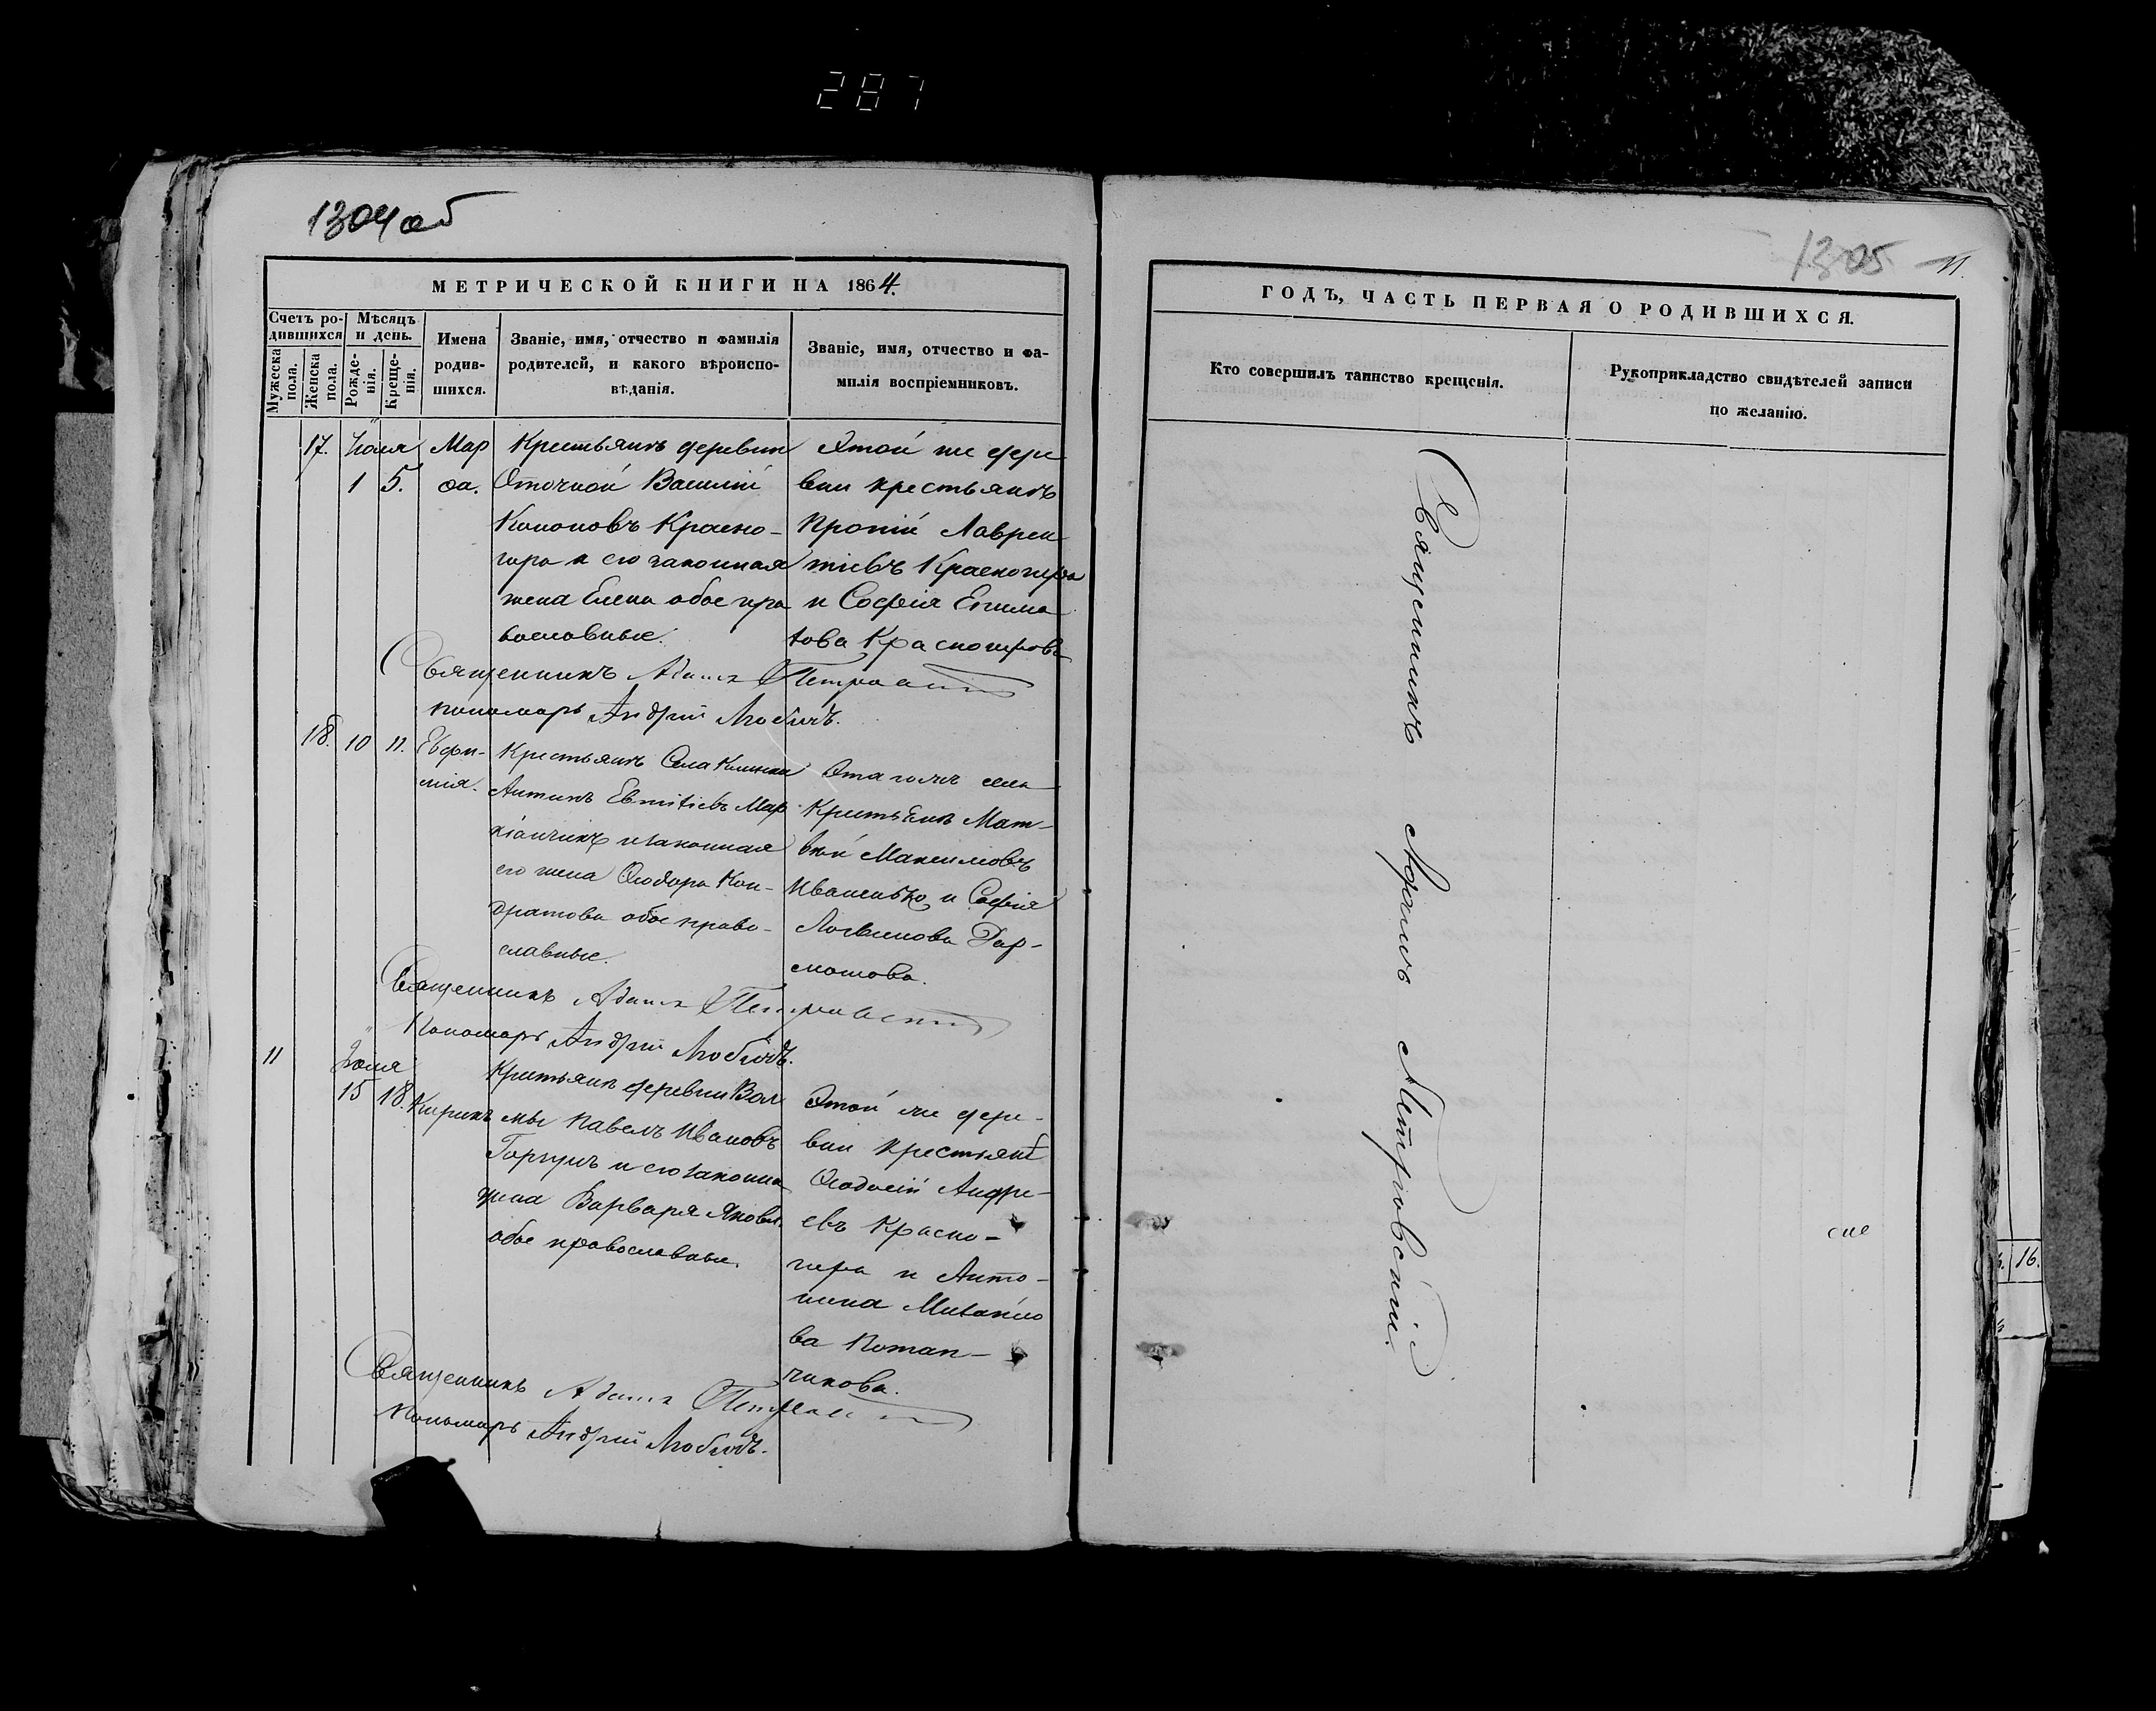 287
1304об
МЕТРИЧЕСКОЙ КНИГИ НА 1864.
Счетъ ро-
дившихся
Мѣсяцъ
и день.
Мужеска
пола.
Женска
пола.
Рожде-
нія.
Креще-
нія.
Имена
родив-
шихся.
Званіе, имя, отчество и фамилія
родителей, и какого вѣроиспо-
вѣданія.
Званіе, имя, отчество и фа-
милія воспріемниковъ.
17. Іюля
1 5.
Мар
фа.
Крестьянъ деревни
Оточной Василій
Кононовъ Красно-
гира и его законная
жена Елена обое пра
вославные.
Этой же дере
вни крестьянъ
Протій Лаврен
тіевъ Красногира
и Софія
това Красногирова
Священникъ Адамъ Петровскій
пономарь Андрій
18. 10 11.
Евфи-
мія.
Крестьянъ Села
Антипъ Евтихіевъ Мар
кіанчикъ и законная
его жена Ѳеодора Кон-
дратова обое право-
славные.
Этаго жъ села
Крестьянъ Мат-
вѣй Максимовъ
Иваненько и Софія
Логвинова
Священникъ Адамъ Петровскій
Пономарь Андрій
11
Іюля
15 18. Кирикъ
Крестьянъ деревни Вол
мы Павелъ Ивановъ
Горгунъ и его законна
жена Варвара Яковл.
обое православные.
Этой же дере-
вни крестьянъ
Ѳеодосій Андре-
евъ Красно-
гира и Анто-
нина Михайло
ва Роман-
чикова.
Священникъ Адамъ Петровскій
пономарь Андрій
1305
11.
ГОДЪ, ЧАСТЬ ПЕРВАЯ О РОДИВШИХСЯ.
Кто совершилъ таинство крещенія.
Рукоприкладство свидѣтелей записи
по желанію.
Священникъ Адамъ Петровскій.
16.